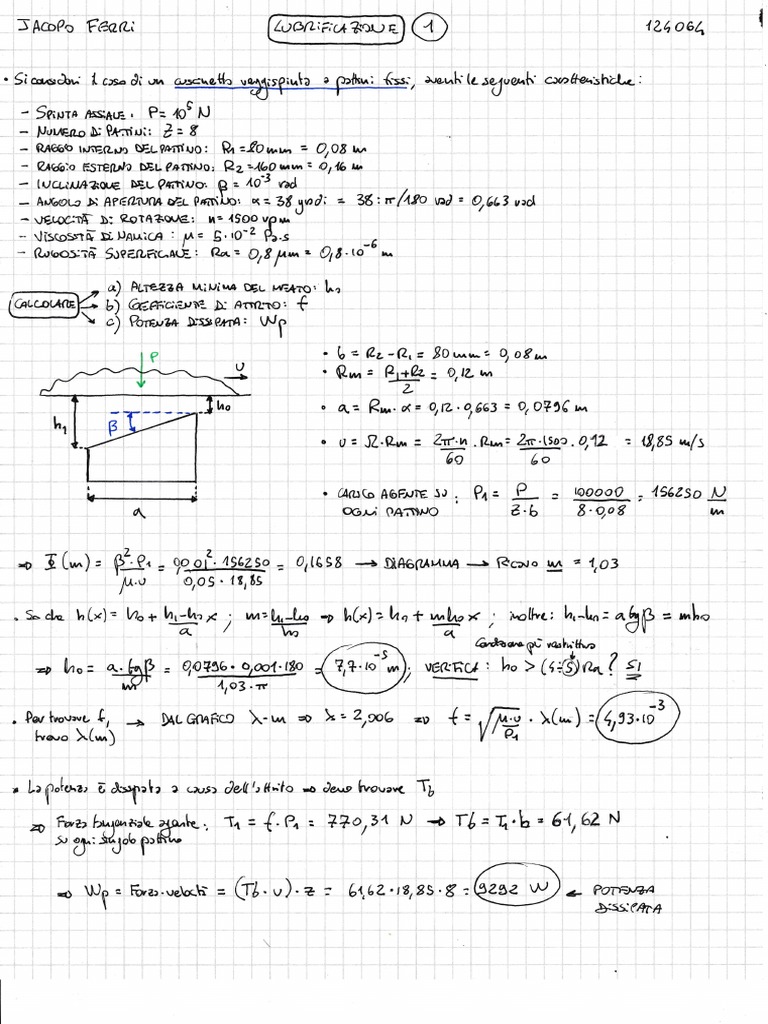 JACOPO FERRI LUBRIFICAZIONE 1 124064
• Si consideri il caso di un cuscinetto reggispinta a pattini fissi, aventi le seguenti caratteristiche:
- SPINTA ASSIALE: P = 10⁵ N
- NUMERO DI PATTINI: Z = 8
- RAGGIO INTERNO DEL PATTINO: R1 = 80 mm = 0,08 m
- RAGGIO ESTERNO DEL PATTINO: R2 = 160 mm = 0,16 m
- INCLINAZIONE DEL PATTINO: β = 10⁻³ rad
- ANGOLO DI APERTURA DEL PATTINO: α = 38 gradi = 38·π/180 rad = 0,663 rad
- VELOCITÀ DI ROTAZIONE: n = 1500 rpm
- VISCOSITÀ DINAMICA: μ = 5·10⁻² Pa·s
- RUGOSITÀ SUPERFICIALE: Ra = 0,8 μm = 0,8·10⁻⁶ m
CALCOLARE
a) ALTEZZA MINIMA DEL MEATO: h₀
b) COEFFICIENTE DI ATTRITO: f
c) POTENZA DISSIPATA: Wp
P
U
h₁
β
h₀
a
• b = R2 - R1 = 80 mm = 0,08 m
• Rm = (R1+R2)/2 = 0,12 m
• a = Rm·α = 0,12·0,663 = 0,0796 m
• U = Ω·Rm = (2π·n)/60 · Rm = (2π·1500)/60 · 0,12 = 18,85 m/s
• CARICO AGENTE SU OGNI PATTINO: P1 = P/(Z·b) = 100000/(8·0,08) = 156250 N/m
⇒ Φ(m) = (β²·P1)/(μ·U) = (0,001²·156250)/(0,05·18,85) = 0,1658 → DIAGRAMMA → Ricavo m = 1,03
• So che h(x) = h₀ + (h₁-h₀)/a x; m = (h₁-h₀)/h₀ ⇒ h(x) = h₀ + (mh₀)/a x; inoltre: h₁-h₀ = a tgβ = mh₀
Condizione più restrittiva
⇒ h₀ = (a·tgβ)/m = (0,0796·0,001·180)/(1,03·π) = 7,7·10⁻⁵ m; VERIFICA: h₀ > (4÷5)Ra? SI
• Per trovare f, trovo λ(m) → DAL GRAFICO λ-m ⇒ λ = 2,006 ⇒ f = √((μ·U)/P1) · λ(m) = 4,93·10⁻³
• La potenza è dissipata a causa dell'attrito ⇒ devo trovare Tb
⇒ Forza tangenziale agente su ogni singolo pattino: T1 = f·P1 = 770,31 N → Tb = T1·b = 61,62 N
⇒ Wp = Forza·velocità = (Tb·U)·Z = 61,62·18,85·8 = 9292 W ← POTENZA DISSIPATA